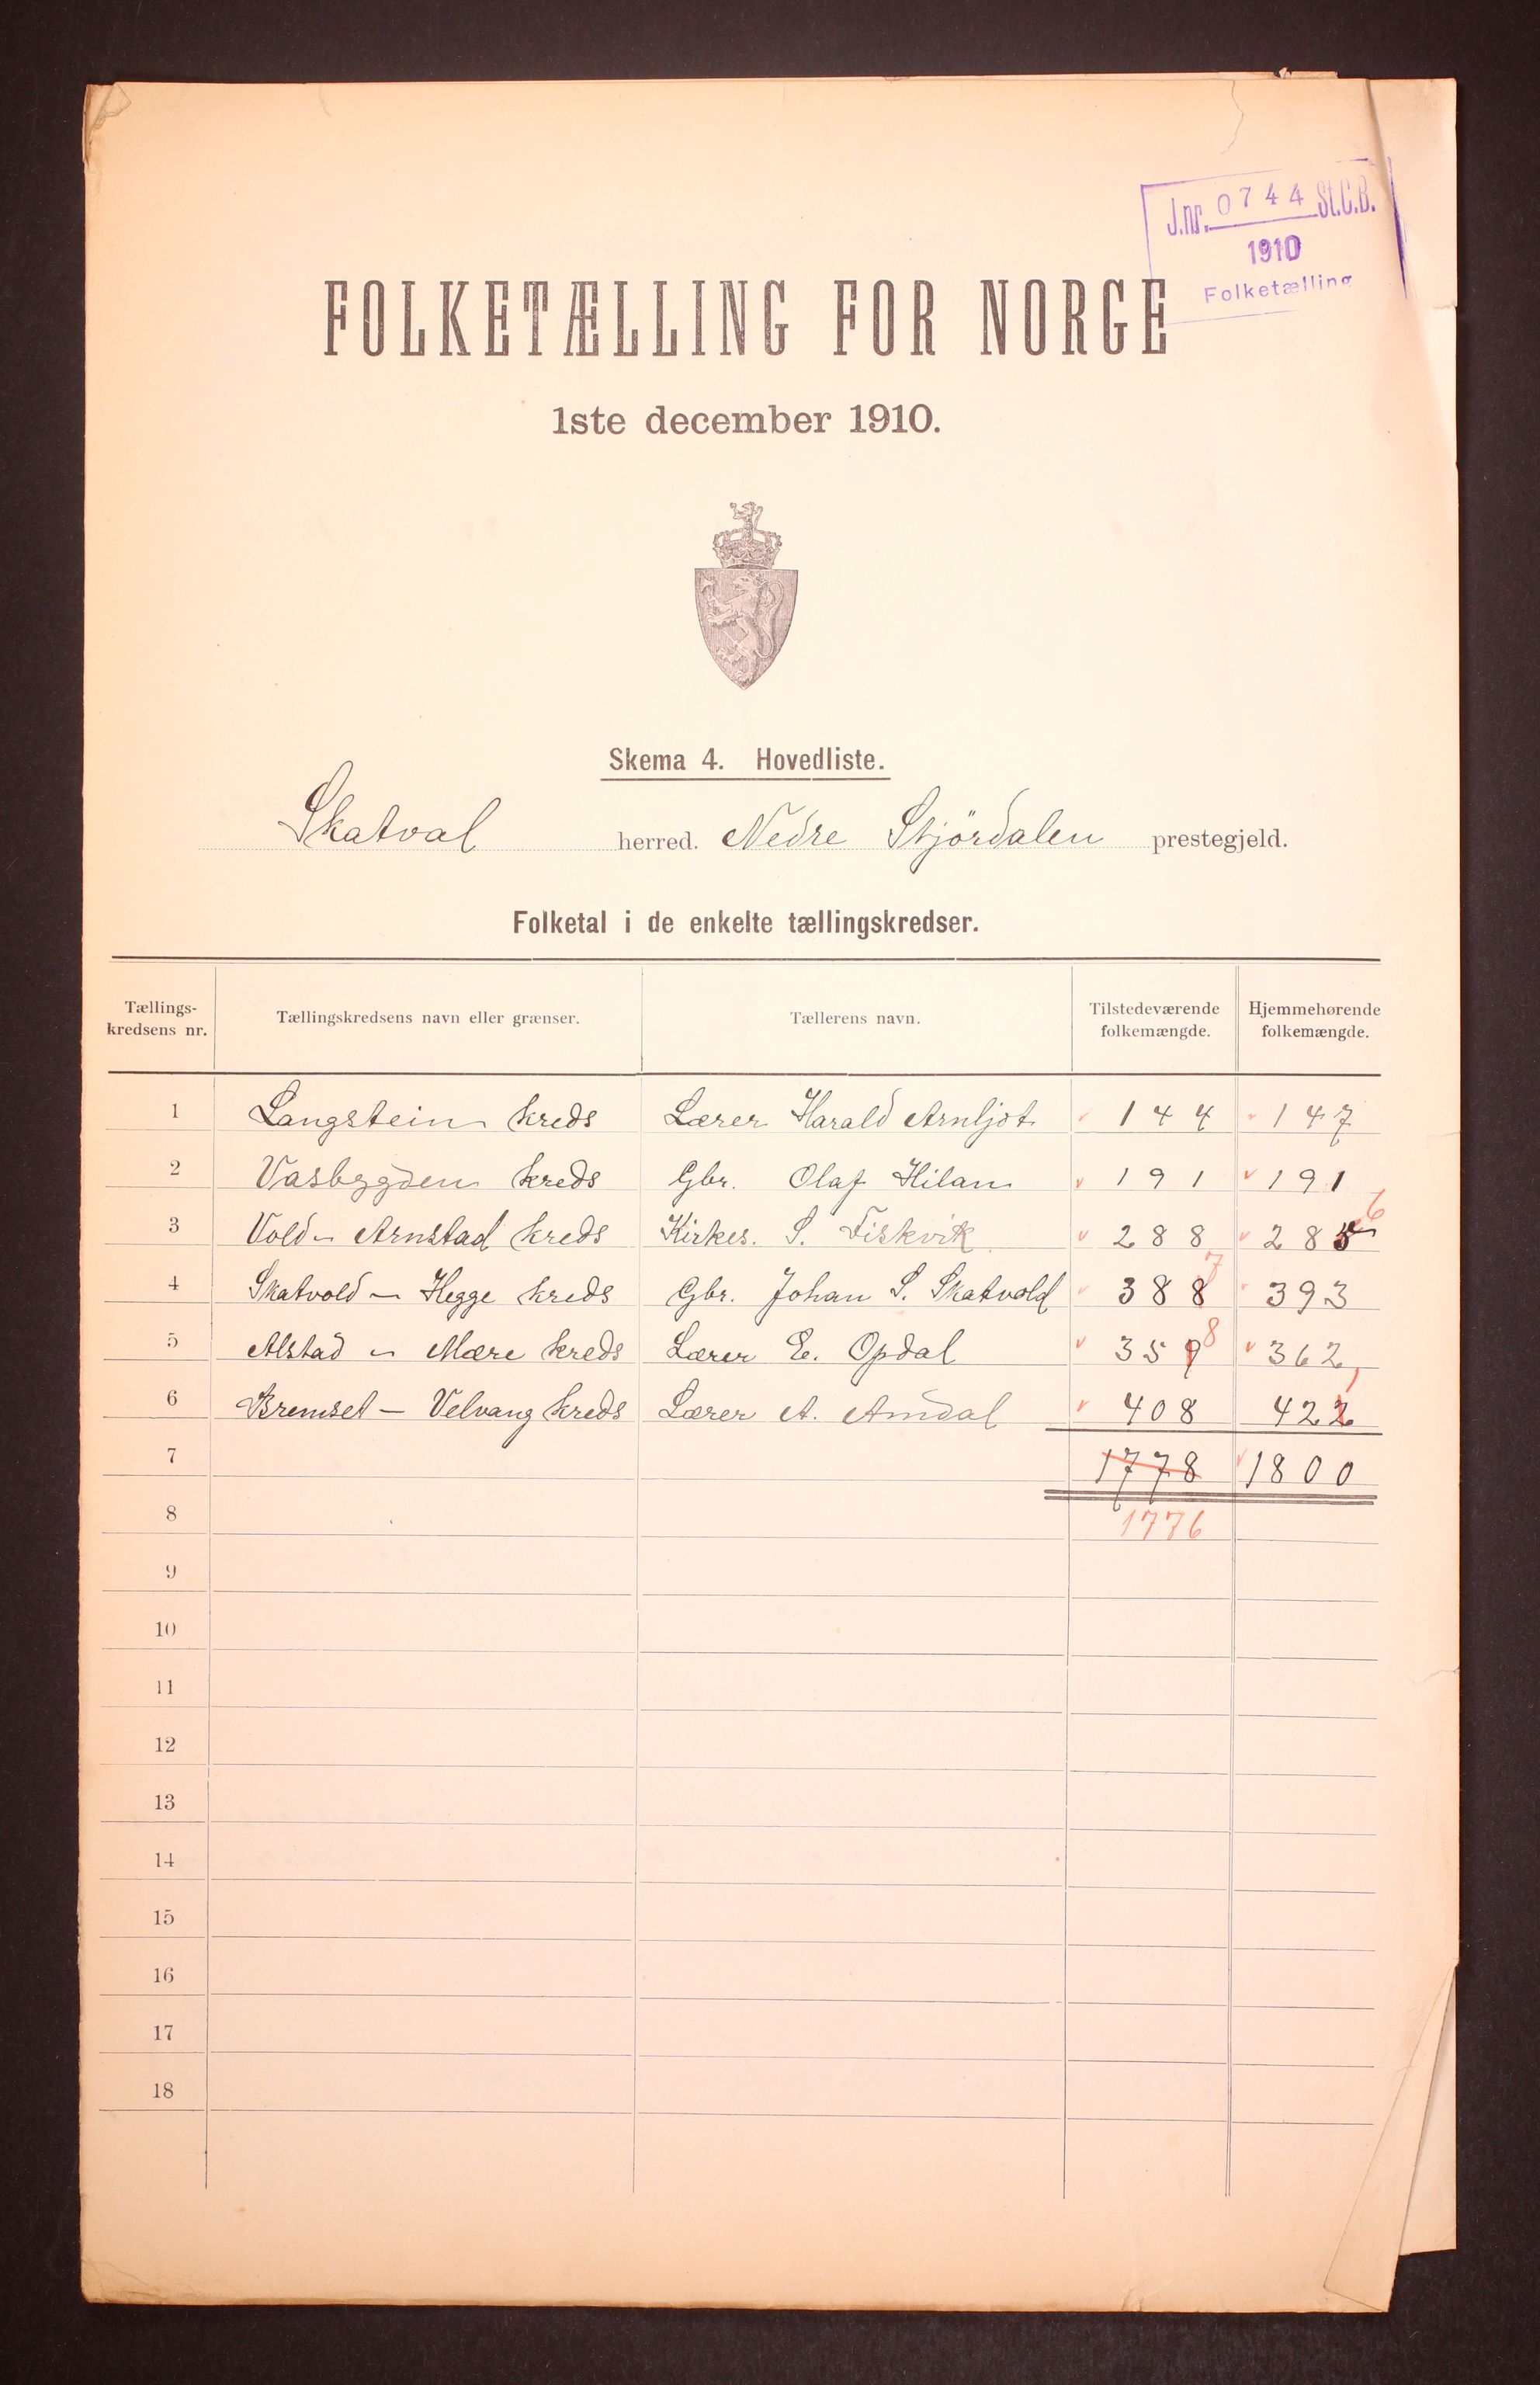 J.nr. 0744 St.C.B.
1910
Folketælling
FOLKETÆLLING FOR NORGE
1ste december 1910.
Skema 4. Hovedliste.
Skatval herred. Nedre Stjördalen prestegjeld.
Folketal i de enkelte tællingskredser.
Tællings-kredsens nr. Tællingskredsens navn eller grænser. Tællerens navn. Tilstedeværende folkemængde. Hjemmehørende folkemængde.
1 Langstein kreds Lærer Harald Arnljot 144 147
2 Vasbygden kreds Gbr. Olaf Hilan 191 191
3 Vold - Arnstad kreds Kirkes. S. Fiskvik 288 285 6
4 Skatvold - Hegge kreds Gbr. Johan S. Skatvold 388 7 393
5 Alstad - Mære kreds Lærer E. Opdal 359 8 362
6 Bremset - Velvang kreds Lærer A. Amdal 408 422 1
7 1778 1800
8 1776
9
10
11
12
13
14
15
16
17
18